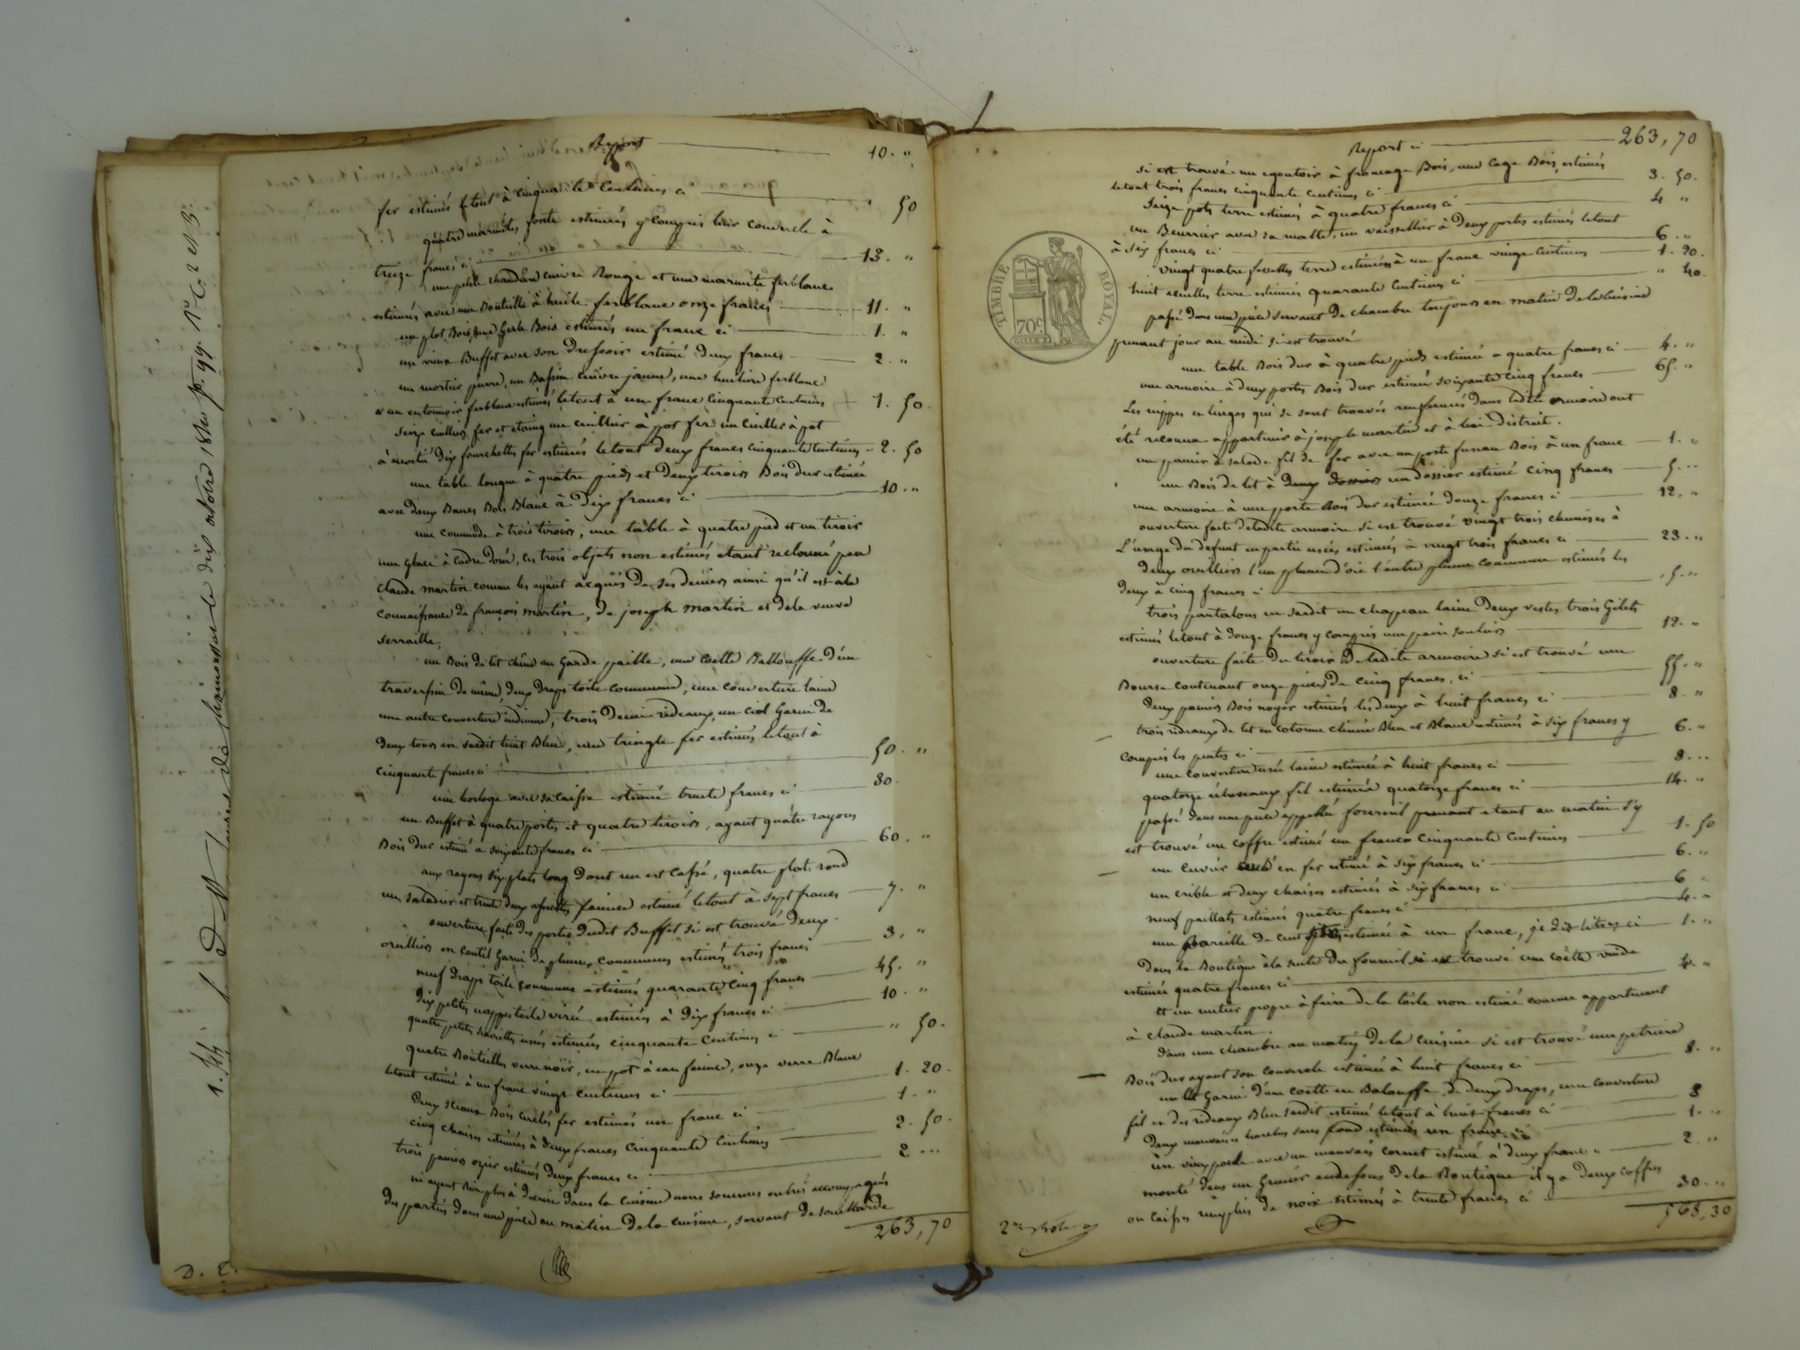 Report 10. "
fer estimés le tout à cinquante Centimes ci 50
quatre marmites fonte estimées y compris leur couvercle à
treize francs ci 13. "
une petite chaudière cuivre Rouge et une marmite ferblanc
estimés avec une Bouteille à huile ferblanc onze francs 11. "
un plot Bois, une Gerle Bois estimés un franc ci 1. "
un vieux Buffet avec son Dressoir estimé deux francs 2. "
un mortier pierre, un Bassin cuivre jaune, une ferblanc
& un entonnoir ferblanc estimés le tout à un franc cinquante Centimes 1. 50.
Seize cuilliers fer et étaing une cuillier à pot fer un cuiller à pot
dix fourchettes fer estimés le tout deux francs cinquante Centimes 2. 50
une table longue à quatre pieds et deux tiroirs Bois dur estimée
avec deux Bancs Bois Blanc à Dix francs ci 10. "
une commode à trois tiroirs, une table à quatre pied et un tiroir
une glace à cadre doré, ces trois objets non estimés étant réclamé par
Claude martin comme les ayant acquis de ses deniers ainsi qu'il est à la
connaissance de françois martin, de joseph martin et de la veuve
Serraille,
un Bois de lit chêne un Garde paille, une Coëtte Ballouffe d'un
traversin de même deux draps toile commune, une couverture laine
une autre couverture indienne, trois Demi rideaux, un Ciel Garni de
deux tours en sardit teint Bleu, une tringle fer estimés le tout à
Cinquante francs ci 50. "
une horloge avec sa caisse estimée trente francs ci 30.
un Buffet à quatre portes et quatre tiroirs, ayant quatre rayons
Bois dur estimé à soixante francs ci 60. "
aux rayons six plats long dont un est Cassé, quatre plats rond
un saladier et trente deux assiettes faïence estimé le tout à sept francs 7. "
ouverture faite des portes dudit Buffet si est trouvé deux
oreilliers en Coutil Garni de plumes communes estimés trois francs 3. "
neuf draps toile commune estimés quarante cinq francs 45. "
dix petites nappes toile estimés à Dix francs ci 10. "
quatre petites serviettes usées estimées cinquante centimes ci " 50.
quatre Bouteilles verre noir, un pot à eau faïence, onze verre Blanc
le tout estimé à un franc vingt centimes ci 1. 20.
deux sceaux Bois cerclés fer estimés un franc ci 1. "
cinq chaises estimées à deux francs cinquante Centimes 2. 50.
trois paniers ozier estimés deux francs ci 2. "
ni ayant rien plus à décrire dans la Cuisine nous sommes entrés accompagnés
des parties dans une pièce au matin de la cuisine, servant de souillarde
263,70
1. D
le dix octobre f. 99. Ro. C. 2 et 3.
D. E.
Report ci 263,70
si est trouvé un égoutoir à fromage Bois, une Cage Bois, estimés
le tout trois francs cinquante centimes ci 3. 50.
Seize pots terre estimés à quatre francs ci 4 "
un Beurrier avec sa un vaissellier à deux portes estimés le tout
à six francs ci 6. "
vingt quatre terre estimées à un franc vingt Centimes 1. 20.
huit écuelles terre estimées quarante Centimes ci " 40.
passé dans une pièce servant de chambre toujours en matin de la Cuisine
prenant jour au midi si est trouvé
une table Bois dur à quatre pieds estimée à quatre francs ci 4. "
une armoire à deux portes Bois dur estimée soixante cinq francs 65. "
Les nippes et linges qui se sont trouvés renfermés dans ladite armoire ont
été reconnu appartenir à joseph martin et à lui distrait.
un panier à salade fil de fer avec un porte fuseau Bois à un franc 1. "
un Bois de lit à un dossier estimé cinq francs 5. "
une armoire à une porte Bois dur estimée douze francs ci 12. "
ouverture faite de ladite armoire si est trouvé vingt trois chemises à
L'usage du défunt en partie usées estimées à vingt trois francs ci 23. "
deux oreilliers l'un plume d'oie l'autre plume commune estimés les
deux à cinq francs ci 5. "
trois pantalons en sardit un chapeau laine deux vestes trois Gilets
estimés le tout à douze francs y compris une paire souliers 12. "
ouverture faite du tiroir de ladite armoire si est trouvé une
Bourse contenant onze pièces de cinq francs, ci 55. "
deux paniers Bois noyer estimés les deux à huit francs ci 8. "
trois rideaux de lit en cotonne chinée Bleu et Blanc estimés à six francs y
Compris les pentes ci 6. "
une couverture usée laine estimée à huit francs ci 8. "
quatorze écheveaux fil estimés quatorze francs ci 14. "
passé dans une pièce appellée fournil prenant étant au matin s'y
est trouvé un coffre estimé un franc cinquante Centimes 1. 50
un Cuvier en fer estimé à six francs ci 6. "
un crible et deux chaises estimées à six francs ci 6 "
neuf paillats estimés quatre francs ci 4. "
une de cent estimée à un franc, je dis ci 1. "
Dans la Boutique à la suite du fournil si est trouvé une Coëtte vuide
estimée quatre francs ci 4. "
et un métier propre à faire de la toile non estimé comme appartenant
à Claude martin.
Dans une chambre au matin de la Cuisine si est trouvé une pétrière
Bois dur ayant son couvercle estimée à huit francs ci 8. "
un lit Garni d'une coëtte en Balouffe de deux draps, une Couverture
fil et des rideaux Bleu sardit estimé le tout à huit francs ci 8
deux mauvaises sans fond estimés un franc ci 1. "
un vieux avec un mauvais cornet estimé à deux francs ci 2. "
monté dans un Grenier au dessous de la Boutique il y a deux Coffres
ou Caisses remplies de noix estimées à trente francs ci 30. "
568,30
2me Rôle
TIMBRE ROYAL.
70c